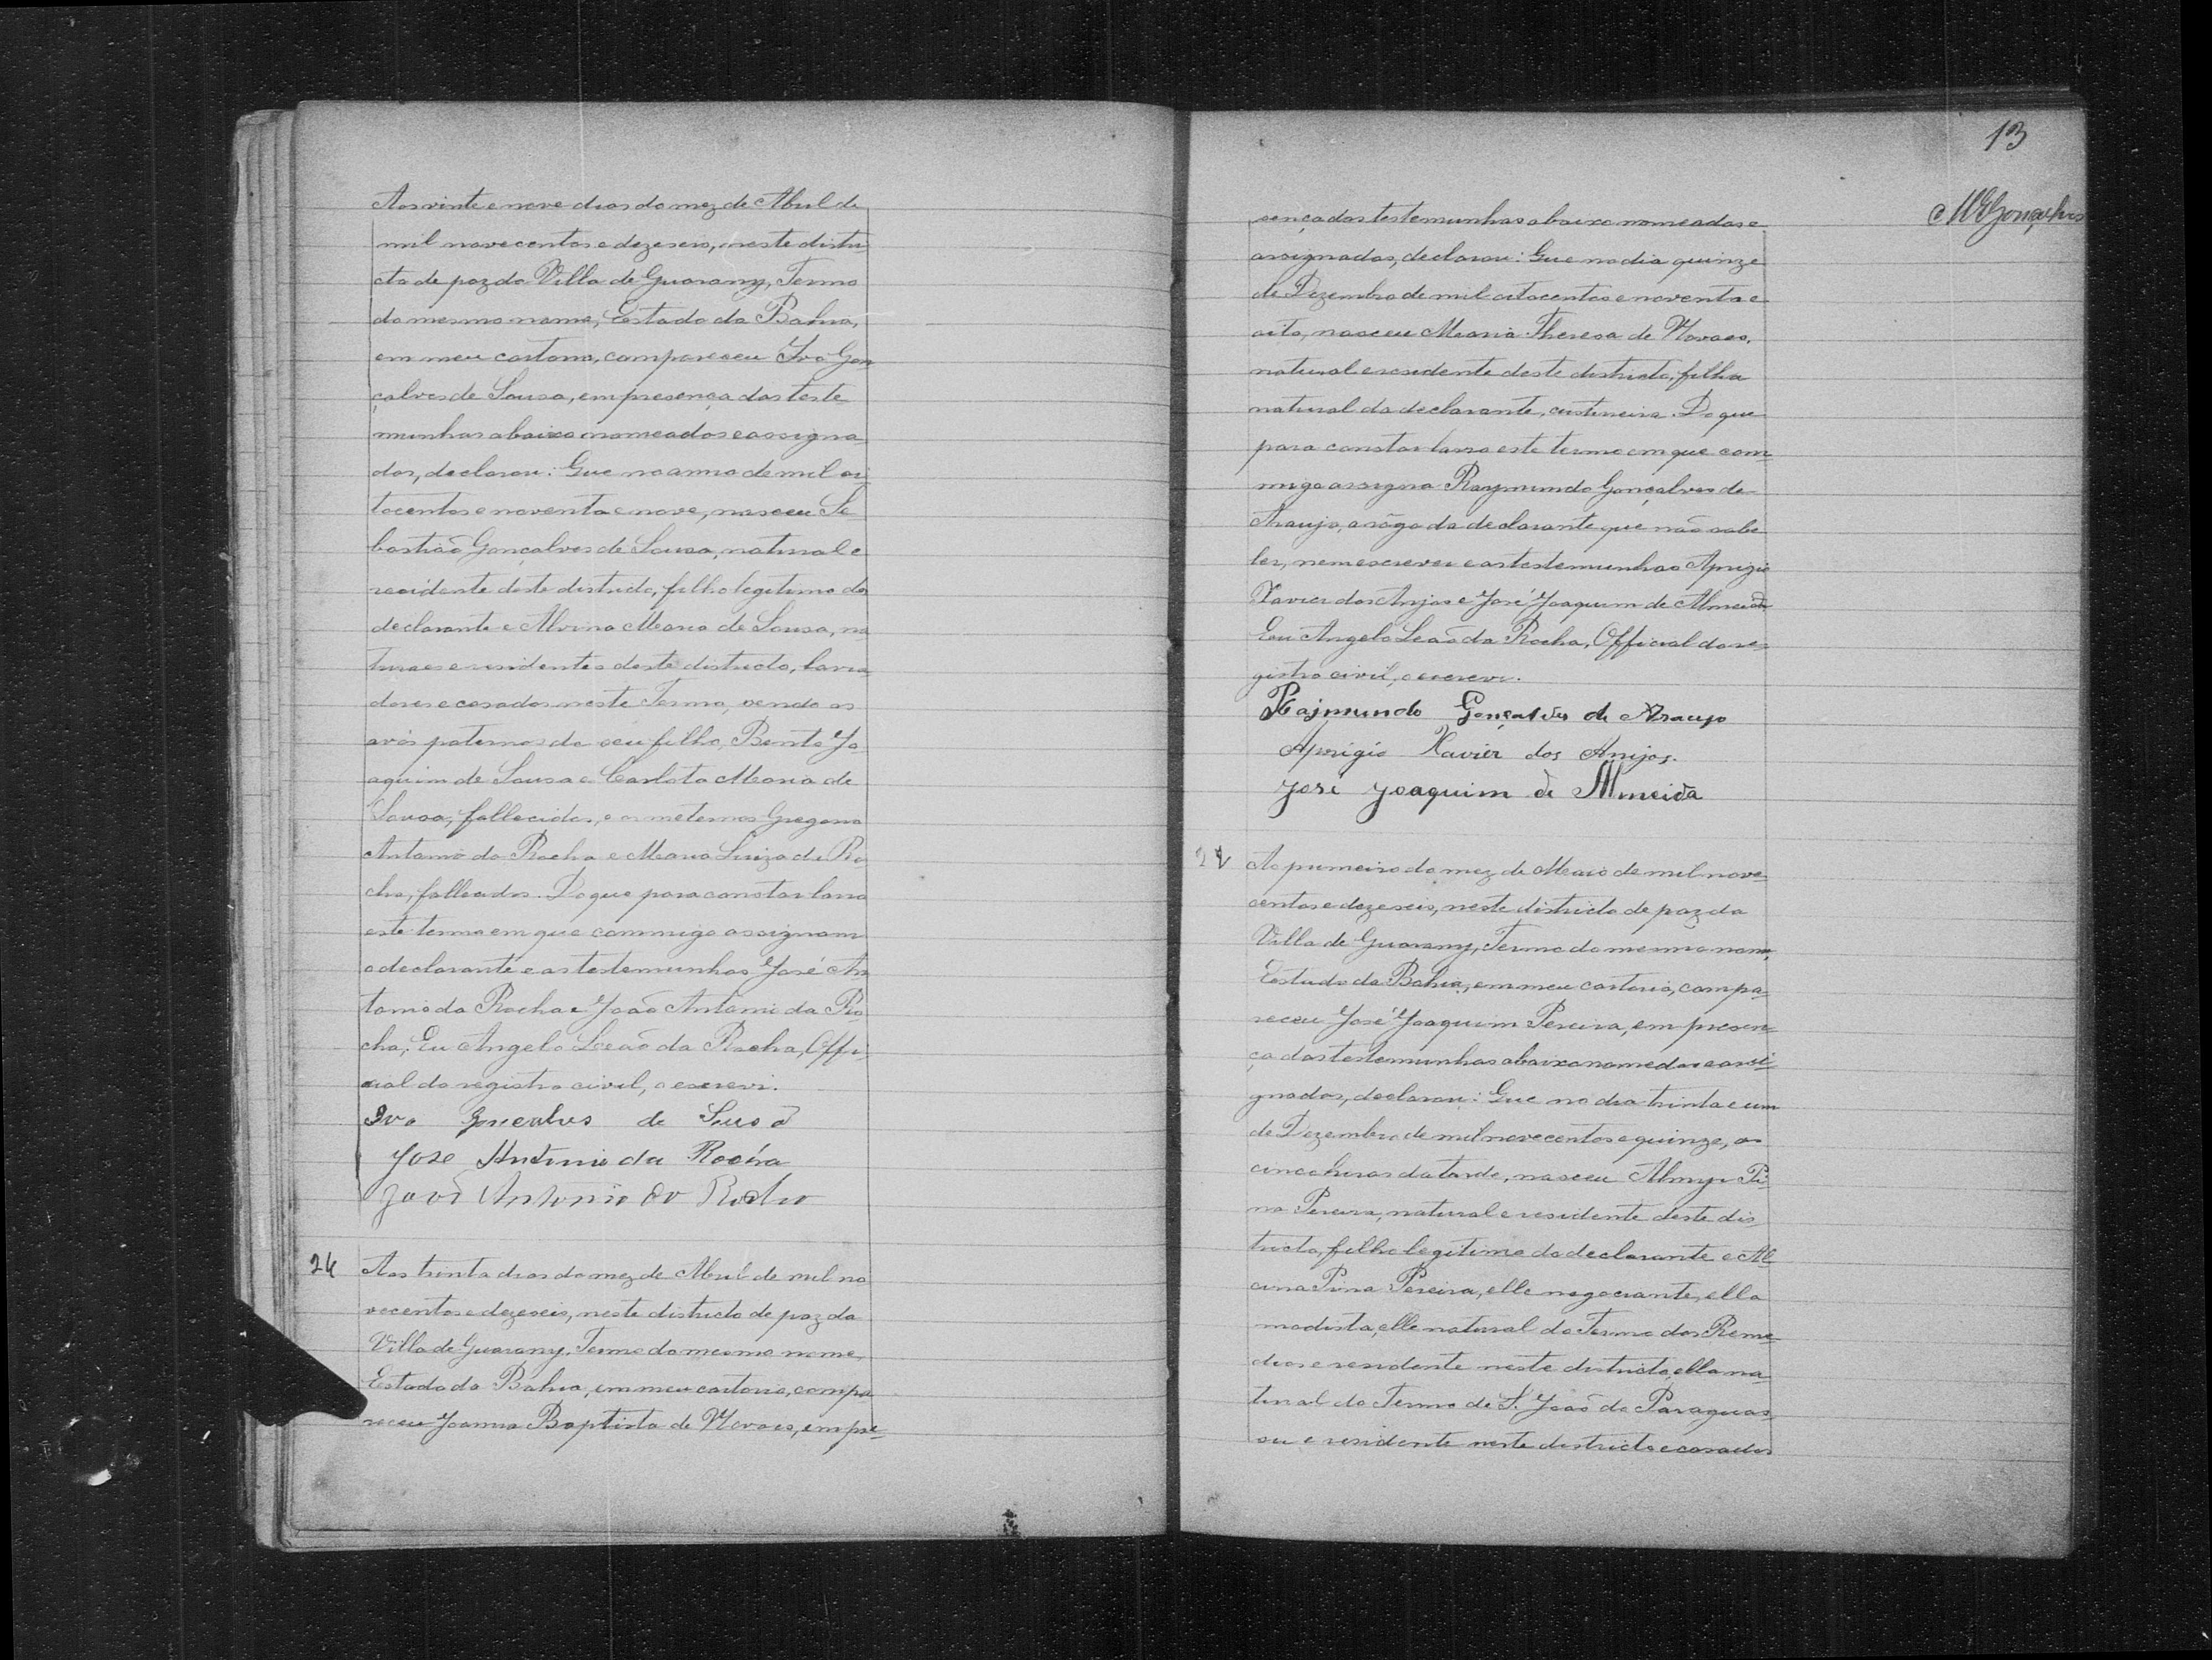 Aos vinte e nove dias do mez de Abril de
mil nove centos e dezeseis, neste distri
cto de paz da Villa de Guarany, Termo
do mesmo nome, Estado da Bahia,
em meu cartorio, compareceu Ivo Gon
çalves de Sousa, em presença das teste
munhas abaixo nomeadas e assigna
das, declarou: Que no anno de mil oi
tocentos e noventa e nove, nasceu Se
bastião Gonçalves de Sousa, natural e
residente deste districto, filho legitimo do
declarante e Alvina Maria de Sousa, na
turaes e residentes deste districto, lavra
dores e casados neste Termo, sendo os
avós paternos do seu filho, Bento Jo
aquim de Sousa e Carlota Maria de
Sousa, fallecidos, e os maternos Gregorio
Antonio da Rocha e Maria Luiza da Ro
cha, fallecidos. Do que para constar lavro
este termo em que commigo assignam
o declarante e as testemunhas José An
tonio da Rocha e João Antonio da Ro
cha, Eu Angelo Leão da Rocha, Offi
cial do registro civil, o escrevi.
Ivo Goncalves de Sousa
Jose Antonio da Rocha
João Antonio da Rocha
24 Aos trinta dias do mez de Abril de mil no
vecentos e dezeseis, neste districto de paz da
Villa de Guarany, Termo do mesmo nome,
Estado da Bahia, em meu cartorio, compa
receu Joanna Baptista de Novaes, em pre-
13
sença das testemunhas abaixo nomeadas e
assignadas, declarou: Que no dia quinze
de Dezembro de mil oitocentos e noventa e
oito, nasceu Maria Theresa de Novaes,
natural e residente deste districto, filha
natural da declarante, custureira. Do que
para constar lavro este termo em que com
migo assigna Raymundo Gonçalves de
Araujo, a rôgo da declarante que não sabe
ler, nem escrever e as testemunhas Aprigio
Xavier dos Anjos e José Joaquim de Almeida
Eu Angelo Leão da Rocha, Official do re-
gistro civil, o escrevi.
Rajmundo Gonçalves de Araujo
Aprigio Xavier dos Amjos.
José Joaquim de Almeida
Ao primeiro do mez de Maio de mil nove-
centos e dezeseis, neste districto de paz da
Villa de Guarany, Termo do mesmo nome,
Estado da Bahia, em meu cartorio, compa
receu José Joaquim Pereira, em presen-
ça das testemunhas abaixo nomedas e assi-
gnadas, declarou: Que no dia trinta e um
de Dezembro de mil novecentos e quinze, as
cinco horas da tarde, nasceu Almyr Pi-
na Pereira, natural e residente deste dis
tricto, filho legitimo do declarante e Al
cina Pina Pereira, elle negociante, ella
modista, elle natural do Termo dos Reme-
dios e residente neste districto, ella na-
tural do Termo de S. João do Paraguas
su e residente neste districto e casados